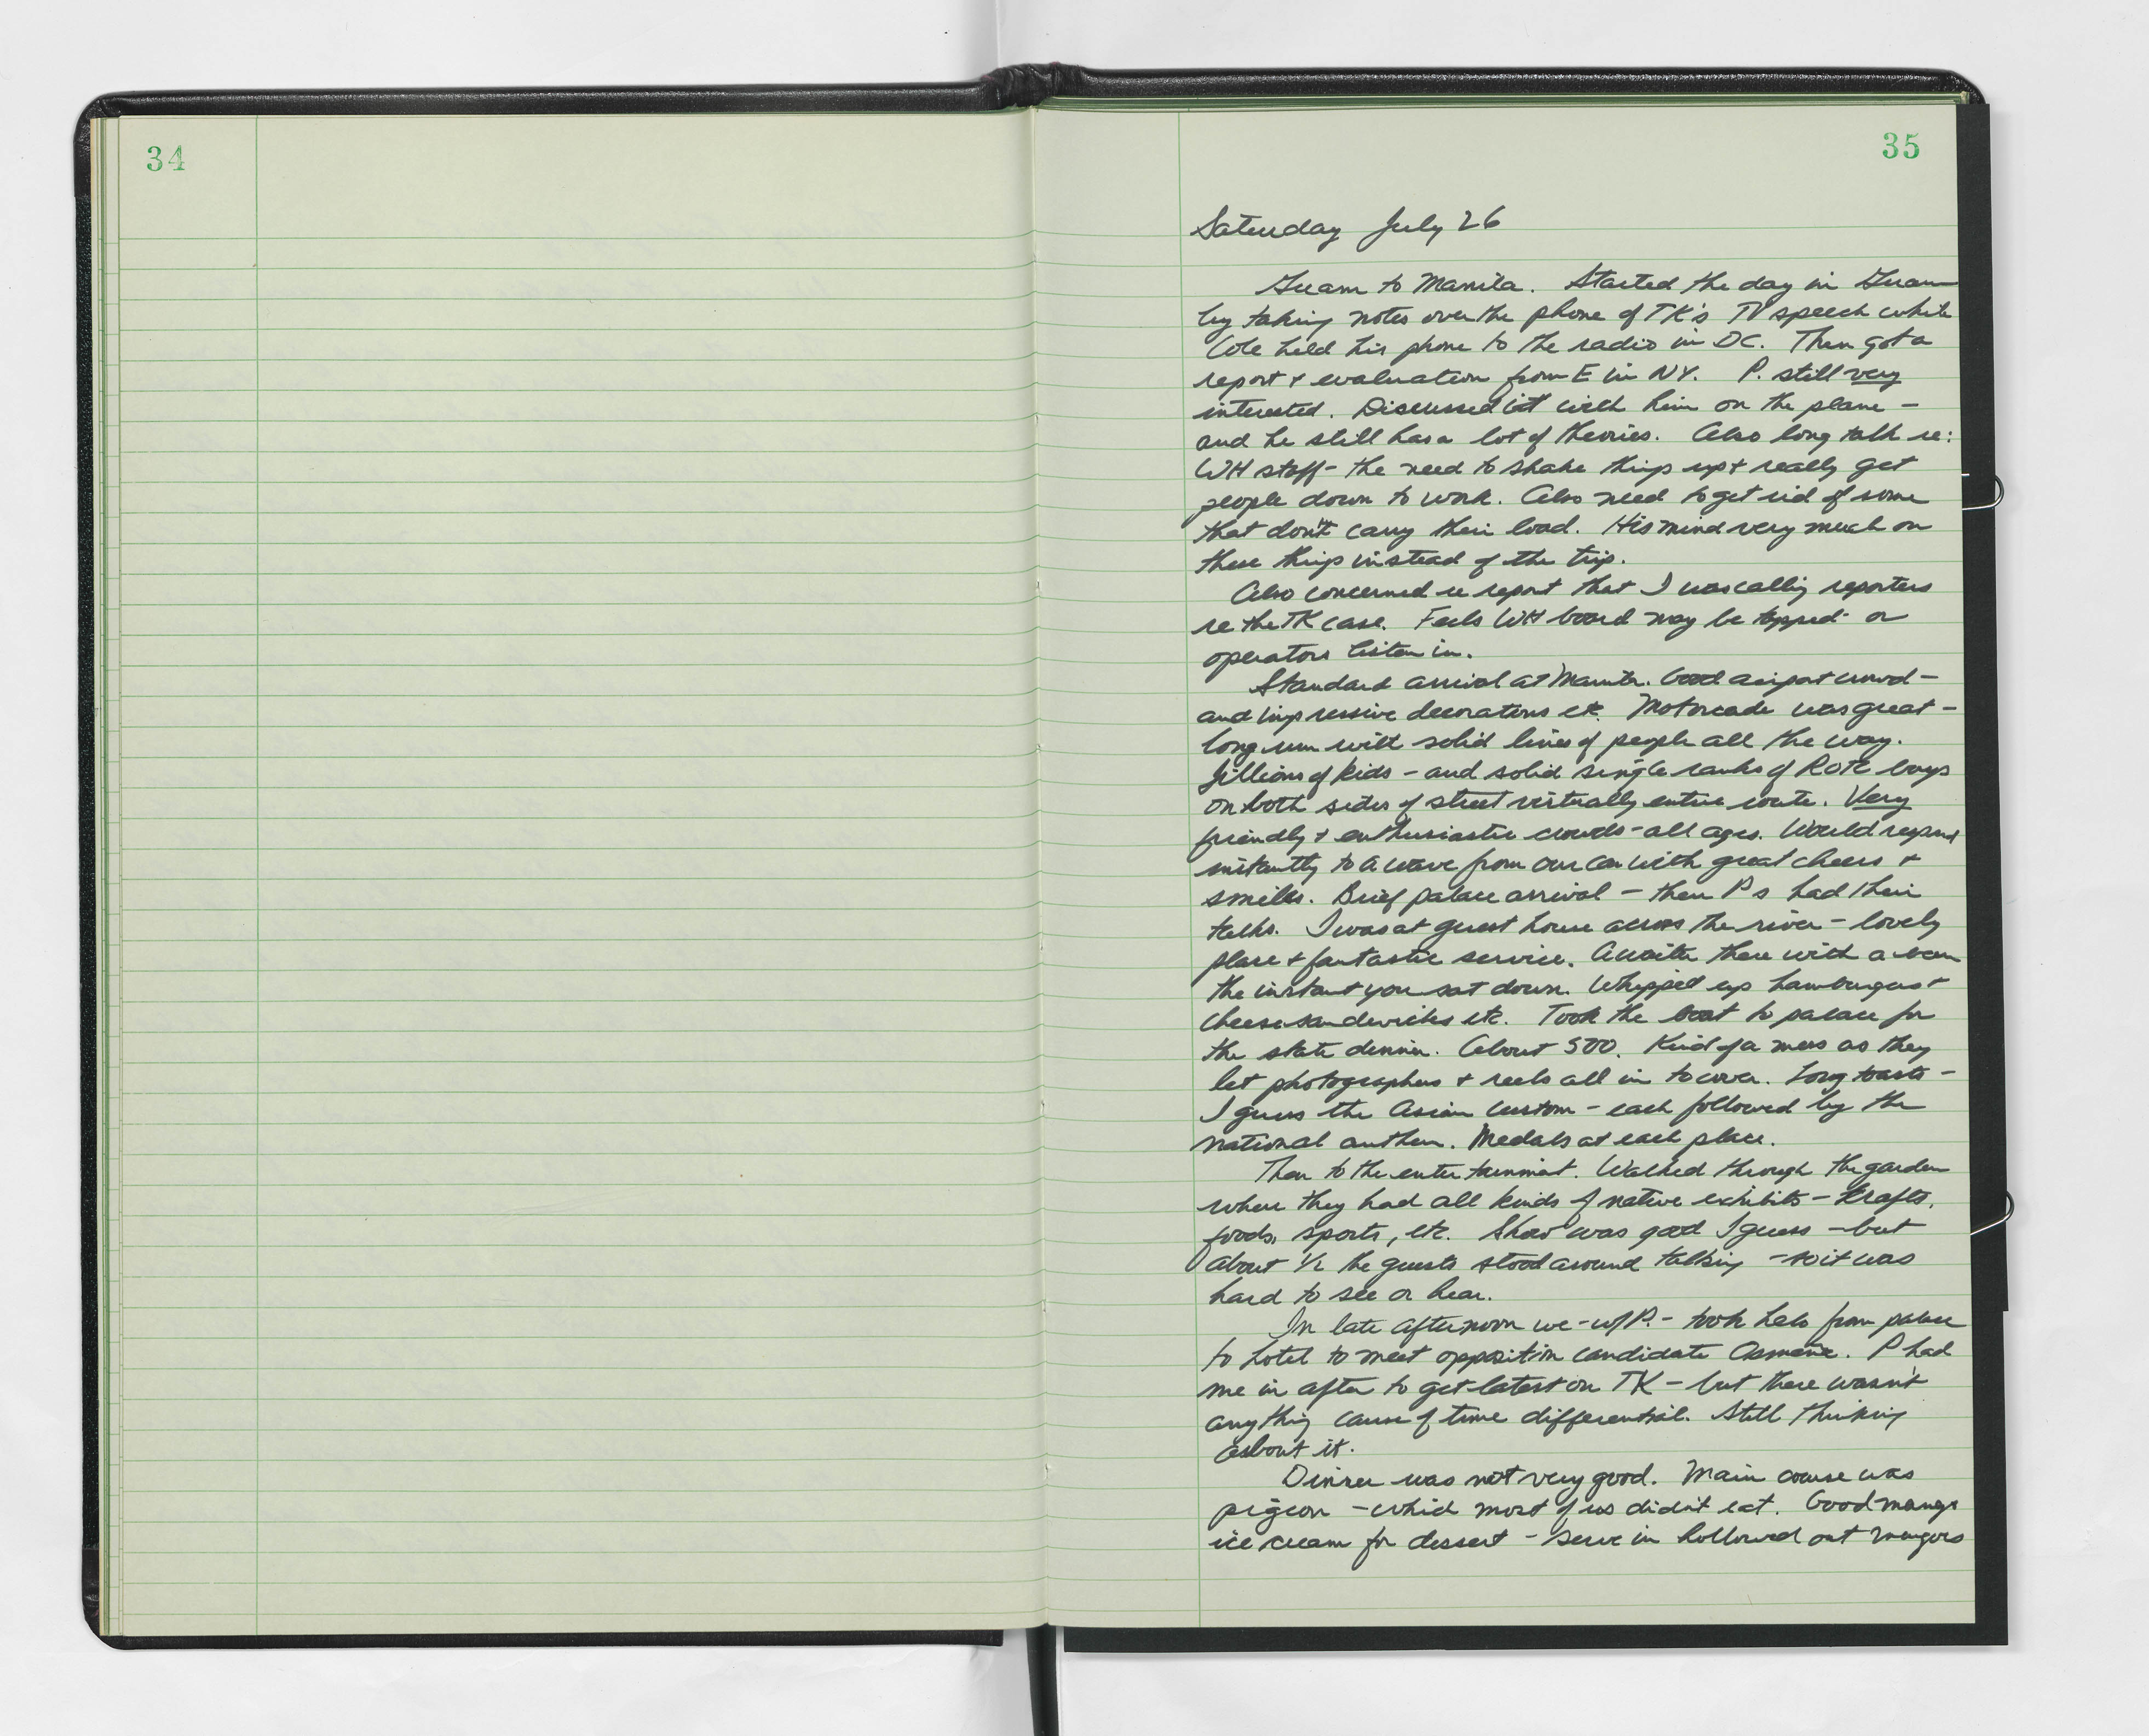 34
35
Saturday July 26
Guam to Manila. Started the day in Guam
by taking notes over the phone of TK's TV speech while
Cole held his phone to the radio in DC. Then got a
report & evaluation from E in NY. P. still very
interested. Discussed it with him on the plane -
and he still has a lot of theories. Also long talk re:
WH staff - the need to shake things up & really get
people down to work. Also need to get rid of some
that don't carry their load. His mind very much on
these things instead of the trip.
Also concerned re report that I was calling reporters
re the TK case. Feels WH board may be tapped - or
operators listen in.
Standard arrival at Manila. Good airport crowd -
and impressive decorations etc. Motorcade was great -
long run with solid lines of people all the way.
Jillions of kids - and solid single ranks of ROTC boys
on both sides of street virtually entire route. Very
friendly & enthusiastic crowds - all ages. Would respond
instantly to a wave from our car with great cheers &
smiles. Brief palace arrival - then Ps had their
talks. I was at guest house across the river - lovely
place & fantastic service. A waiter there with a beer
the instant you sat down. Whipped up hamburgers &
cheese sandwiches etc. Took the boat to palace for
the state dinner. About 500. Kind of a mess as they
let photographers & reels all in to cover. Long toasts -
I guess the Asian custom - each followed by the
national anthem. Medals at each place.
Then to the entertainment. Walked through the garden
where they had all kinds of native exhibits - krafts,
foods, sports, etc. Show was good I guess - but
about ½ the guests stood around talking - so it was
hard to see or hear.
In late afternoon we - w/P. - took helo from palace
to hotel to meet opposition candidate Osmena. P had
me in after to get latest on TK - but there wasn't
anything cause of time differential. Still thinking
about it.
Dinner was not very good. Main course was
pigeon - which most of us didn't eat. Good mango
ice cream for dessert - serve in hollowed out mangos